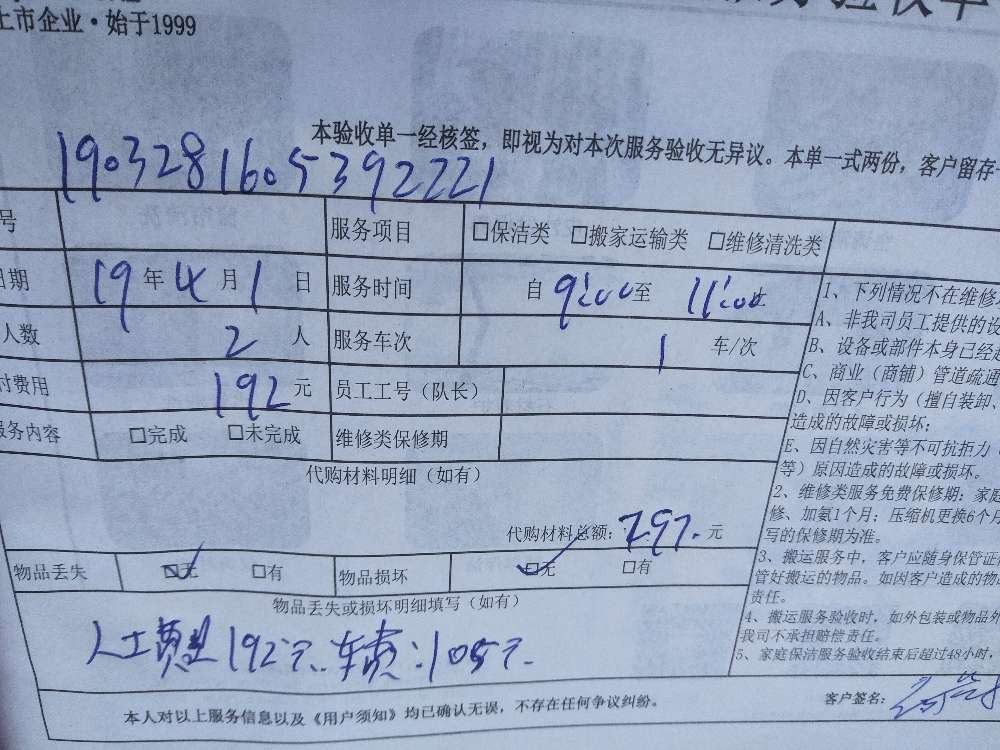 上市企业·始于1999
验收单
本验收单一经核签，即视为对本次服务验收无异议。本单一式两份，客户留存
1903281605392221
号 服务项目 □保洁类 □搬家运输类 □维修清洗类
日期 19年4月1日 服务时间 自9:00至11:00止
人数 2人 服务车次 1车/次
付费用 192元 员工工号（队长）
服务内容 □完成 □未完成 维修类保修期
代购材料明细（如有）
代购材料总额：297.元
物品丢失 ☑无 □有 物品损坏 ☑无 □有
物品丢失或损坏明细填写（如有）
人工费 192元.车费：105元.
本人对以上服务信息以及《用户须知》均已确认无误，不存在任何争议纠纷。
客户签名：
1、下列情况不在维修
A、非我司员工提供的设
B、设备或部件本身已经
C、商业（商铺）管道疏通
D、因客户行为（擅自装卸、
造成的故障或损坏；
E、因自然灾害等不可抗拒力（
等）原因造成的故障或损坏。
2、维修类服务免费保修期：家庭
修、加氨1个月；压缩机更换6个月
写的保修期为准。
3、搬运服务中，客户应随身保管证
管好搬运的物品。如因客户造成的物
责任。
4、搬运服务验收时，如外包装或物品外
我司不承担赔偿责任。
5、家庭保洁服务验收结束后超过48小时，